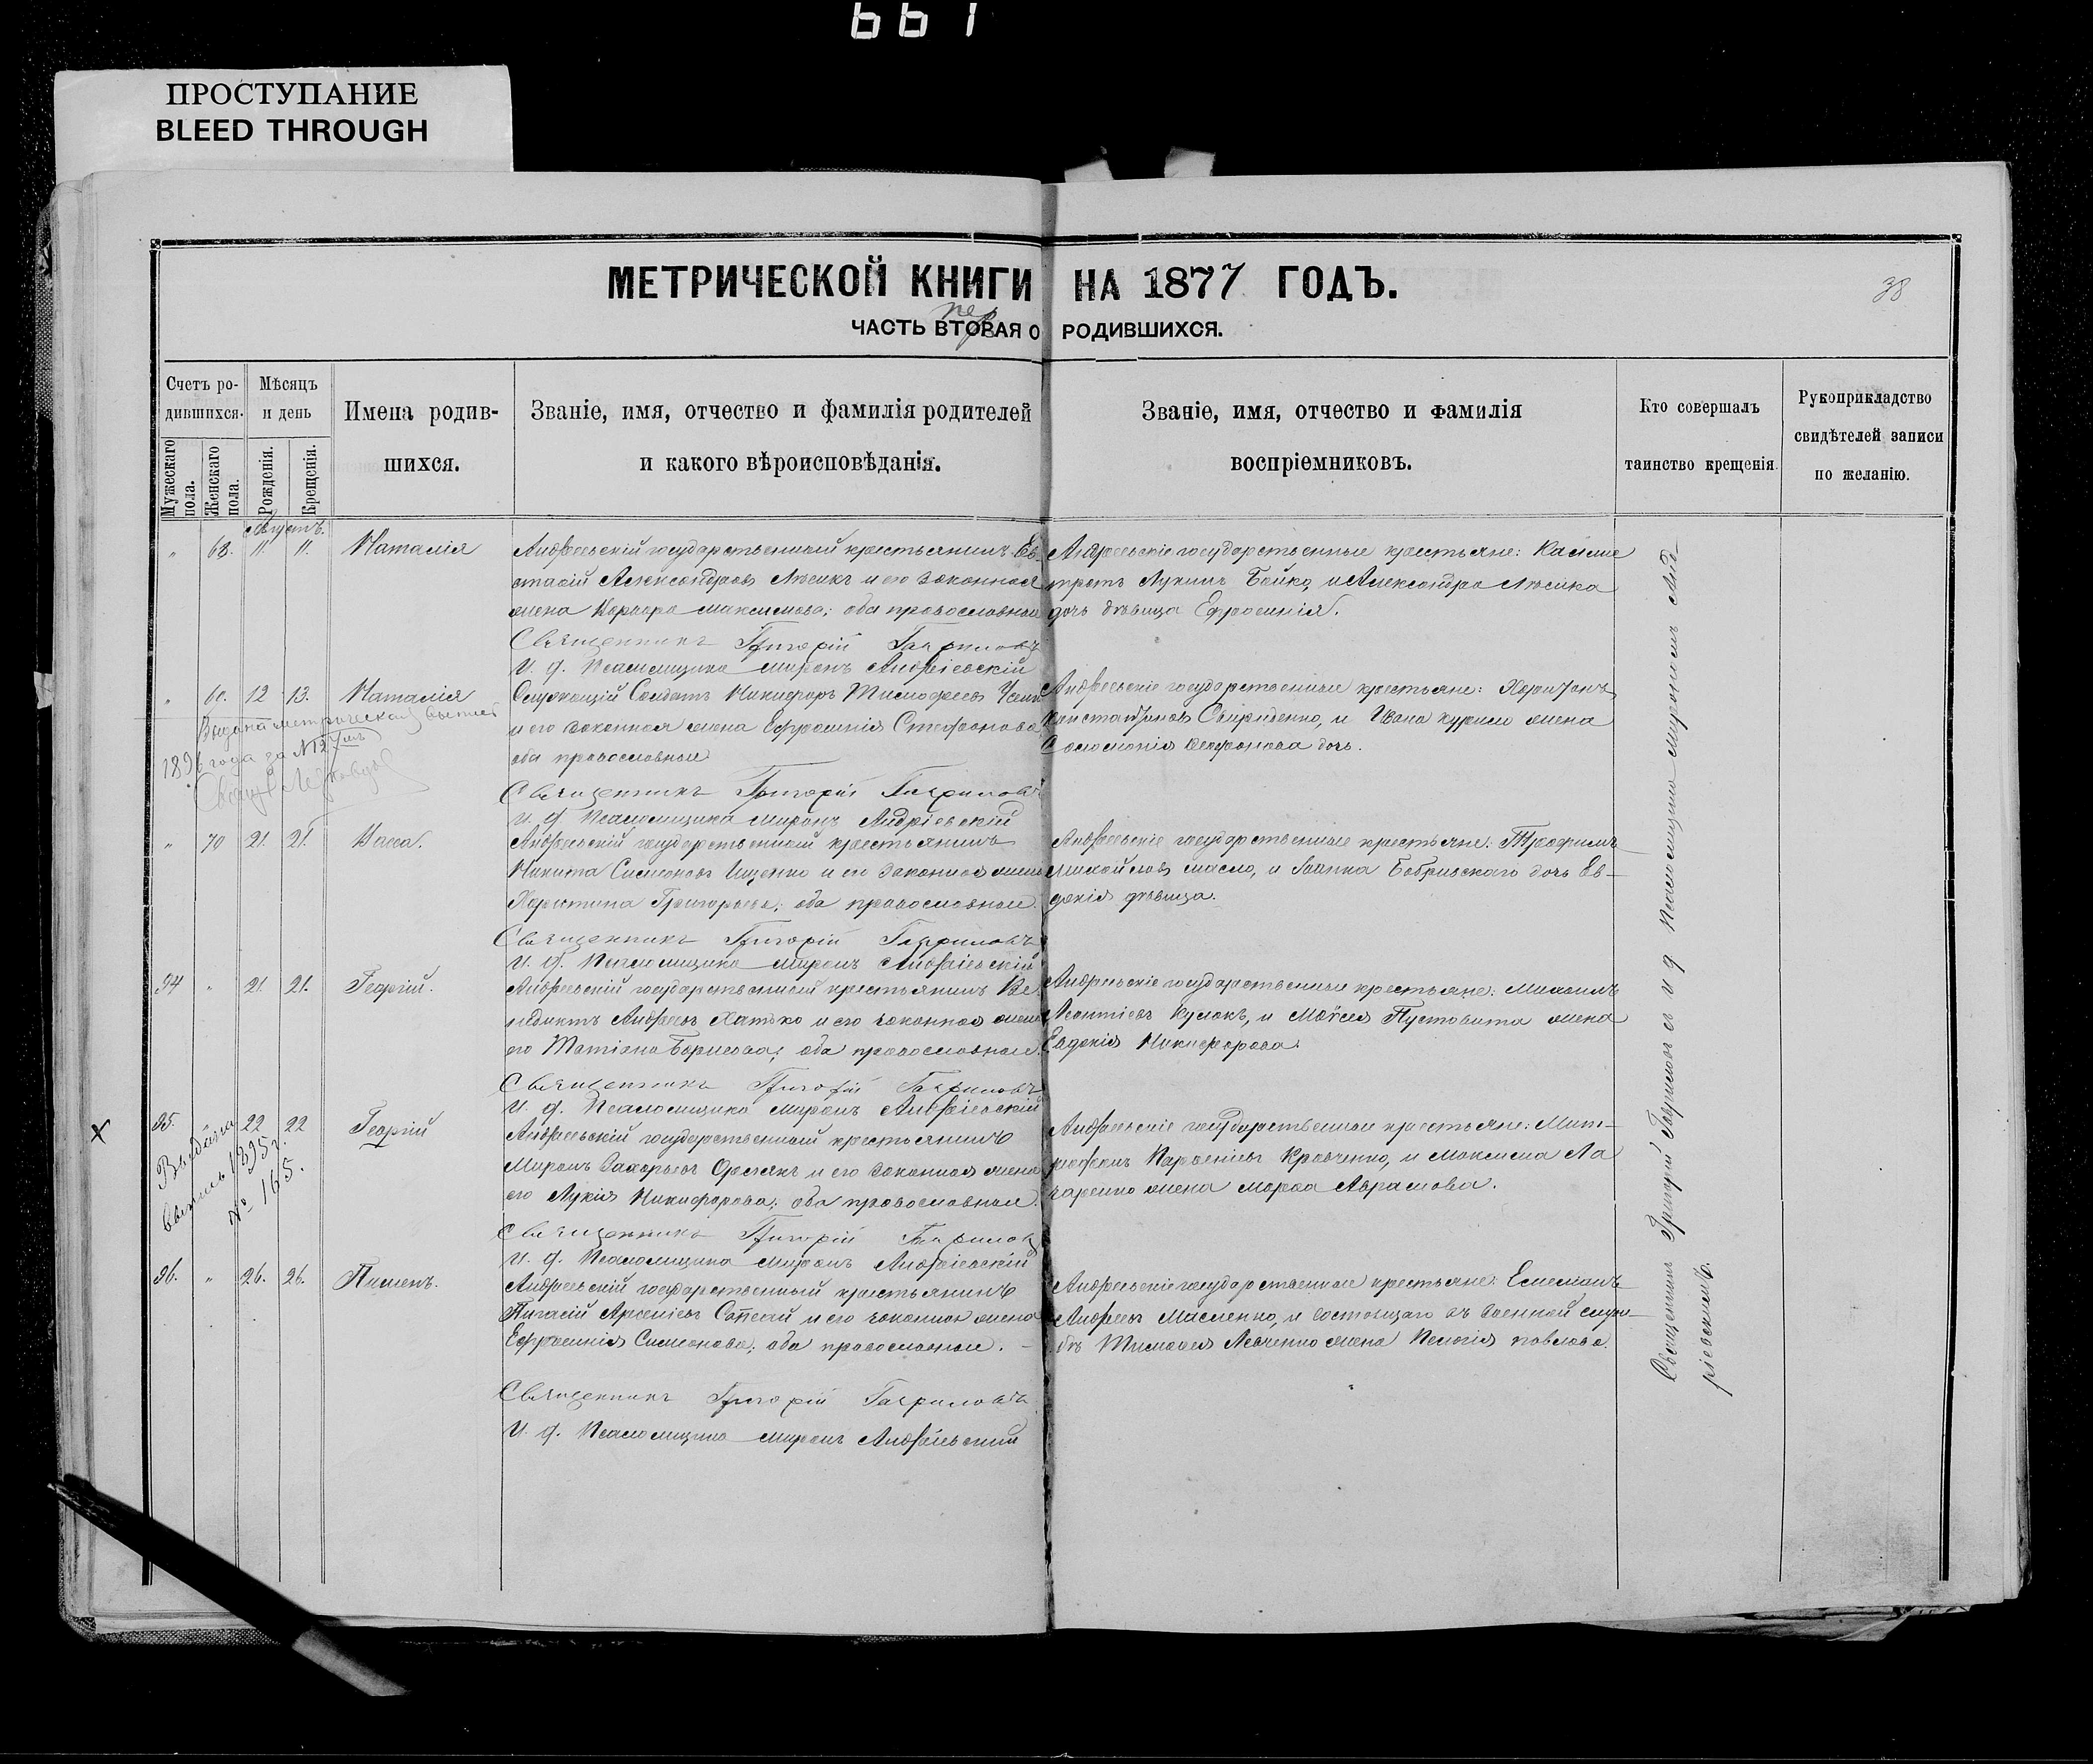 661
ПРОСТУПАНИЕ
BLEED THROUGH
МЕТРИЧЕСКОЙ КНИГИ НА 1877 ГОДЪ.
38
пер
ЧАСТЬ ВТОРАЯ О РОДИВШИХСЯ.
Счетъ ро-
дившихся.
Мужескаго пола.
Женскаго пола.
Мѣсяцъ
и день
Рожденія.
Крещенія.
Имена родив-
шихся.
Званіе, имя, отчество и фамилія родителей
и какого вѣроисповѣданія.
Званіе, имя, отчество и фамилія
воспріемниковъ.
Кто совершалъ
таинство крещенія.
Рукоприкладство
свидѣтелей записи
по желанію.
Августъ.
" 68. 11. 11. Наталія
Андреевскій государственный крестьянинъ Ев-
стафій Александровъ и его законная
жена Варвара Максимова; оба православные
Андреевскіе государственные крестьяне:
Лукинъ Бойко, и Александра
дочь дѣвица Ефросинія.
Священникъ Григорій Гавриловъ
И. д. Псаломщика Миронъ Андріевскій
" 69. 12 13. Наталія
Служащій Солдатъ Никифоръ Тимофеевъ
и его законная жена Ефросинія Стефанова
оба православные
Андреевскіе государственные крестьяне: Харитонъ
Константиновъ Свириденко, и Ивана жена
Соломонія дочь.
Выдана метрическая выпись
189 года за №
Священникъ Григорій Гавриловъ
И. д. Псаломщика Миронъ Андріевскій
" 70 21. 21. Васса.
Андреевскій государственный крестьянинъ
Никита Симеоновъ Ищенко и его законная жена
Харитина Григорьева; оба православные.
Андреевскіе государственные крестьяне: Трофимъ
Михайловъ Масло, и Іоанна Бобринскаго дочь Ев-
докія дѣвица.
Священникъ Григорій Гавриловъ
И. д. Псаломщика Миронъ Андріевскій
94 " 21. 21. Георгій.
Андреевскій государственный крестьянинъ Ве-
недиктъ Андреевъ Хатько и его законная жена
его Татіана Борисова; оба православные.
Андреевскіе государственные крестьяне: Михаилъ
Леонтіевъ Кулакъ, и Моѵсея Пустовита жена
Евдокія Никифорова.
Священникъ Григорій Гавриловъ
И. д. Псаломщика Миронъ Андріевскій
Х 95. 22 22 Георгій
Андреевскій государственный крестьянинъ
Миронъ Захарьевъ и его законная жена
его Лукія Никифорова; оба православные.
Андреевскіе государственные крестьяне: Мит-
рофанъ Парфеніевъ Кравченко, и Максима
жена Марѳа Аврамова.
Выдана
выпись 1895 г.
№ 165.
Священникъ Григорій Гавриловъ
И. д. Псаломщика Миронъ Андріевскій
96. " 26. 26. Пименъ.
Андреевскій государственный крестьянинъ
Арсеніевъ и его законная жена
Ефросинія Симеонова; оба православные. —
Андреевскіе государственные крестьяне: Емеліанъ
Андреевъ Масленко, и состоящаго въ военной служ-
бѣ Тимофея Левченко жена Пелагія Павлова.
Священникъ Григорій Гавриловъ
И. д. Псаломщика Миронъ Андріевскій
Священникъ Григорій Гавриловъ съ и д Псаломщика Мирономъ Анд-
ріевскимъ.